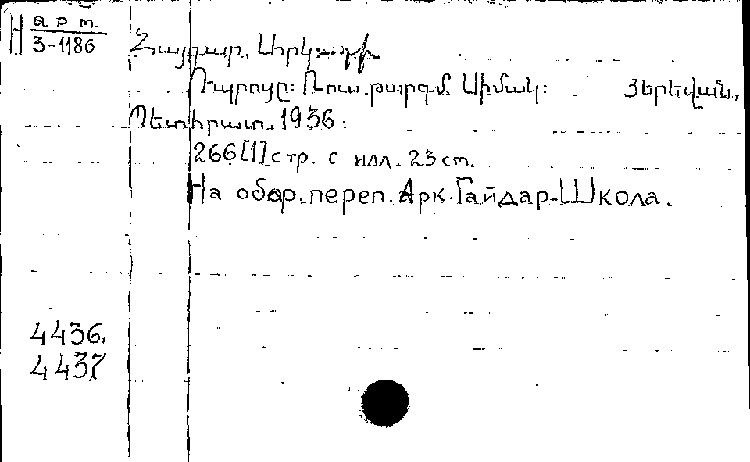 арт.
3-1186
Հայդար, Արկադի
Դպրոցը: Ռուս. թարգմ. Սիմակ: Յերեվան,
Պետհրատ. 1936:
266[1] стр. с илл. 23 cm.
На обор. переп. Арк. Гайдар-Школа.
4436.
4437